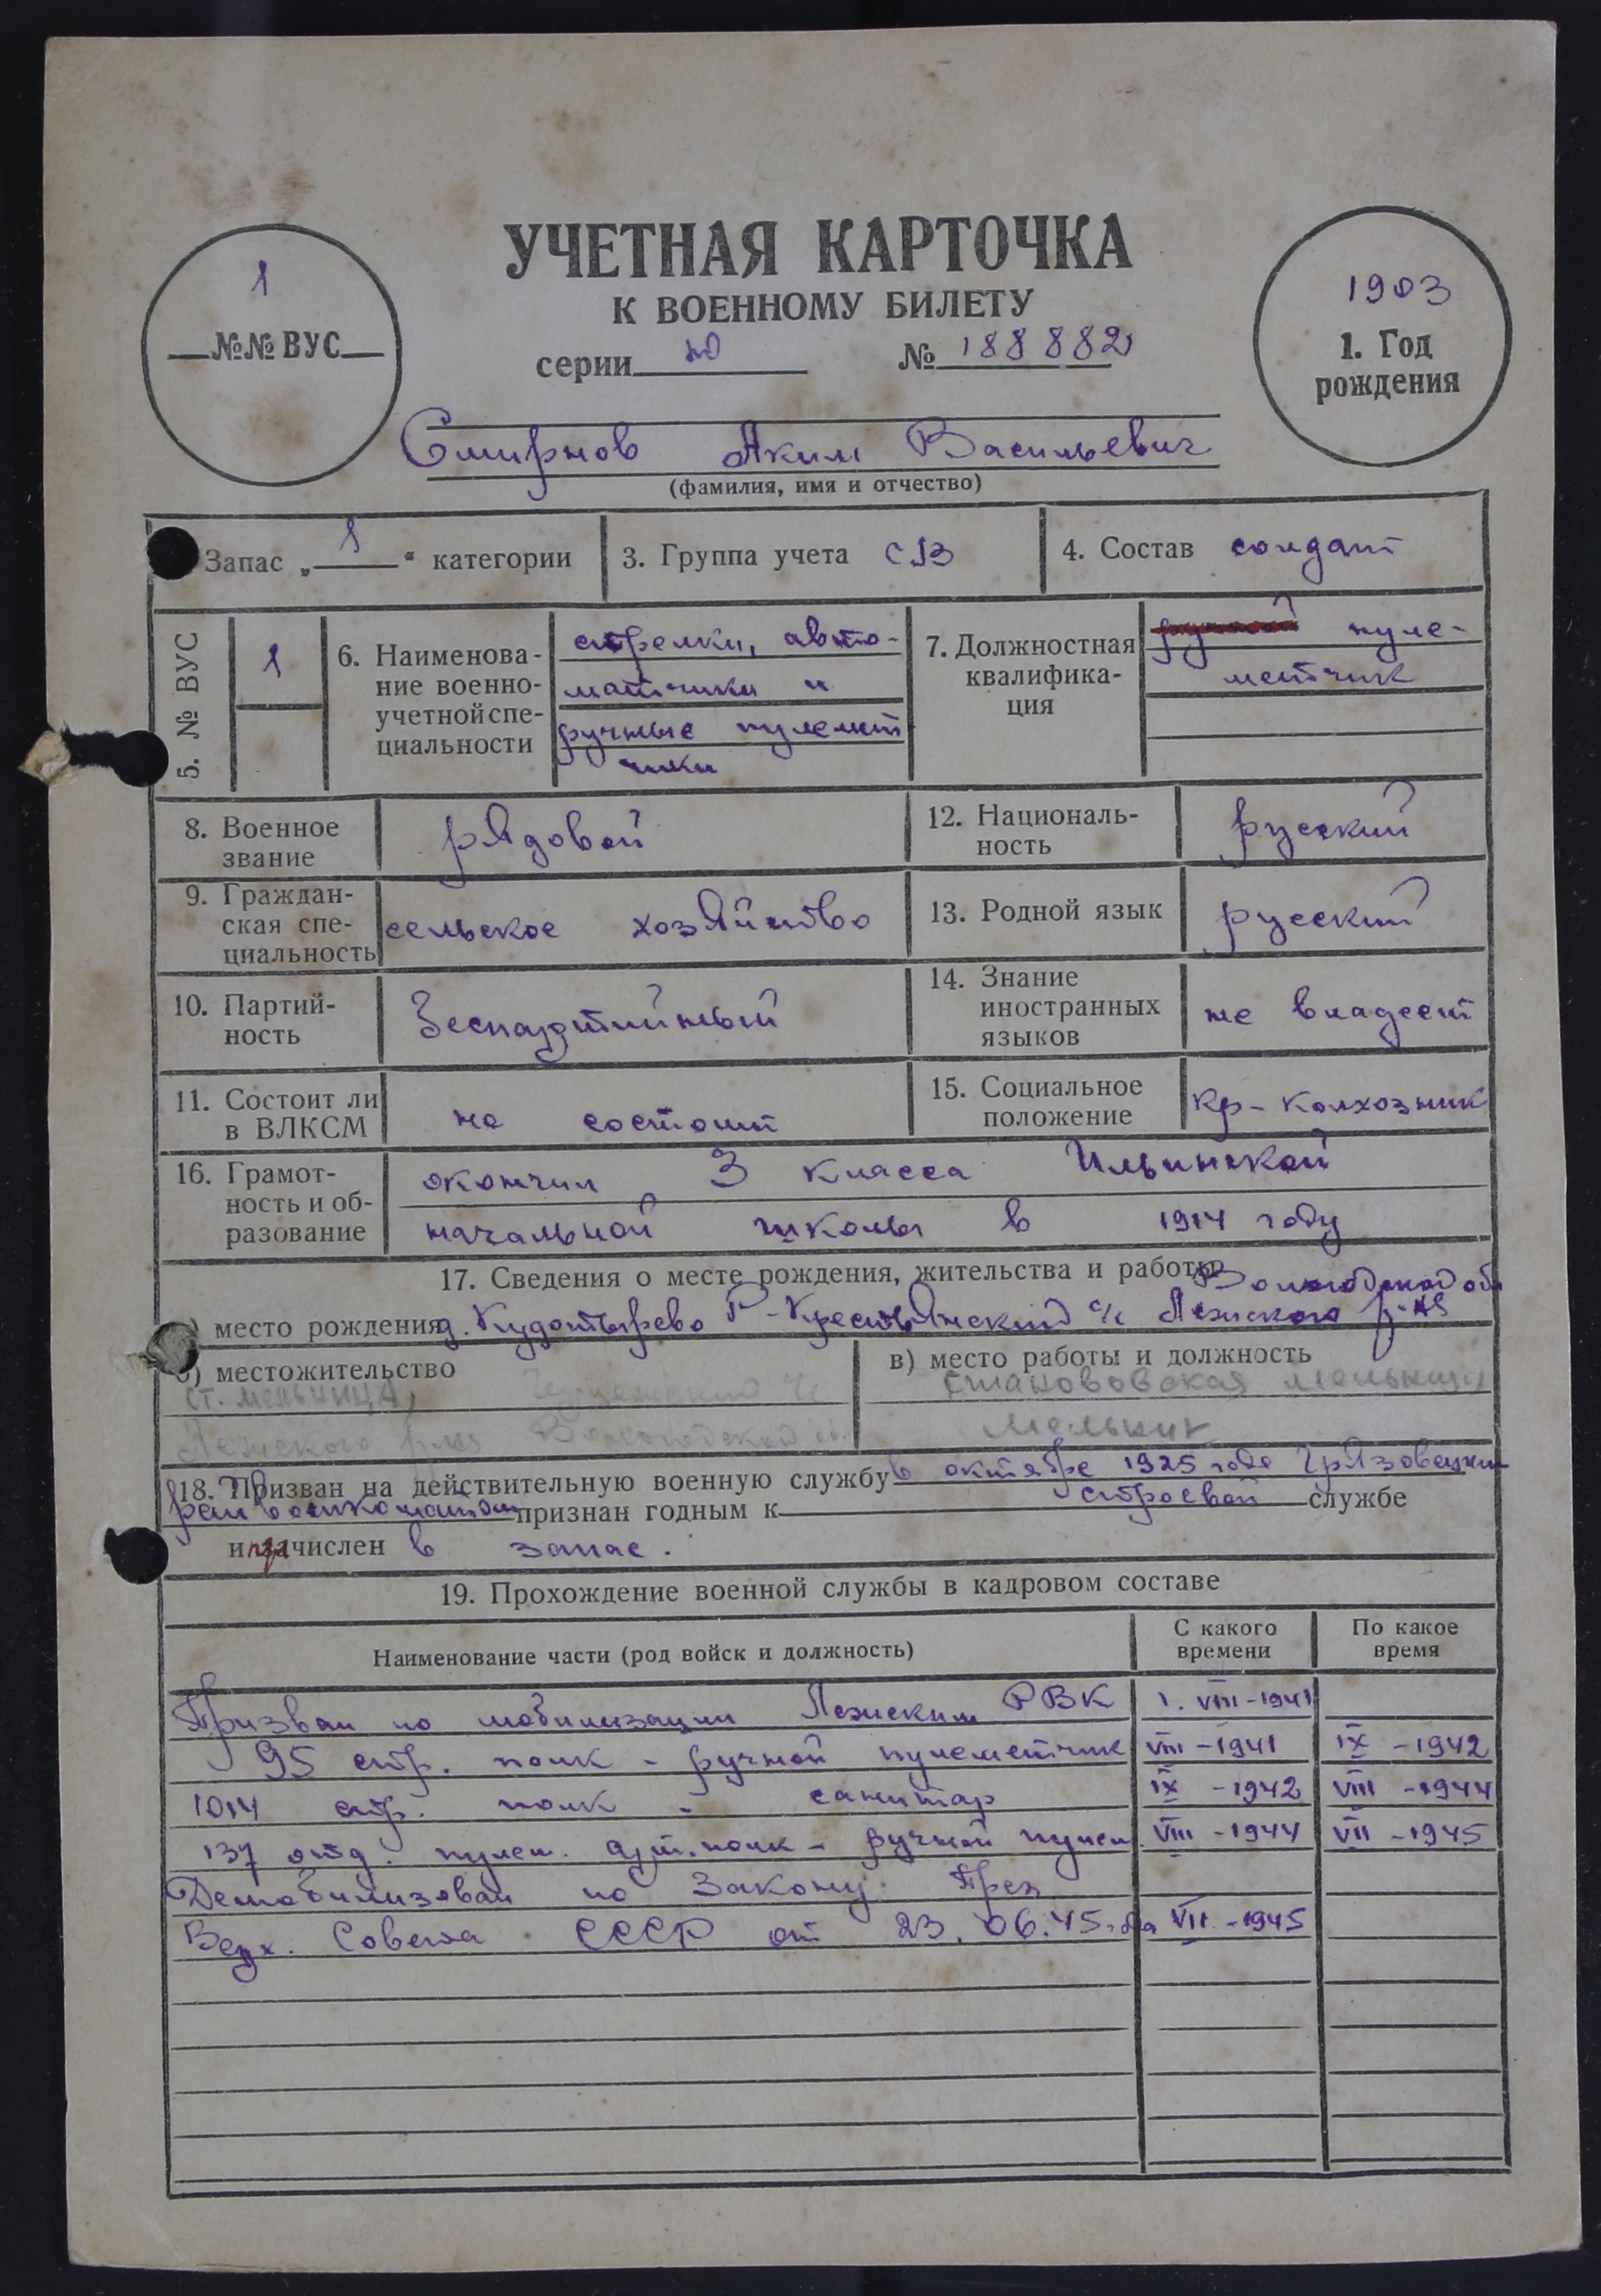 УЧЕТНАЯ КАРТОЧКА
К ВОЕННОМУ БИЛЕТУ
серии № 188882
1
№№ ВУС
1903
1. Год
рождения
Смирнов Аким Васильевич
(фамилия, имя и отчество)
Запас „ 1 “ категории
3. Группа учета СВ
4. Состав солдат
5. № ВУС
1
6. Наименова-
ние военно-
учетной спе-
циальности
стрелки, авто-
матчики и
ручные пулемет
чики
7. Должностная
квалифика-
ция
пуле-
метчик
8. Военное
звание
рядовой
12. Националь-
ность
русский
9. Граждан-
ская спе-
циальность
сельское хозяйство
13. Родной язык
русский
10. Партий-
ность
Беспартийный
14. Знание
иностранных
языков
не владеет
11. Состоит ли
в ВЛКСМ
не состоит
15. Социальное
положение
Кр-колхозник
16. Грамот-
ность и об-
разование
окончил 3 класса Ильинской
начальной школы в 1914 году
17. Сведения о месте рождения, жительства и работы
Вологодской обл
место рождения д. Р-Крестьянский с/с Лежского р-на
б) местожительство
ст. мельница,
Лежского р-на Вологодской обл.
в) место работы и должность
мельница
Мельник
18. Призван на действительную военную службу в октябре 1925 года Грязовецким
райвоенкоматом признан годным к строевой службе
и зачислен в запас.
19. Прохождение военной службы в кадровом составе
Наименование части (род войск и должность)
С какого
времени
По какое
время
Призван по мобилизации Лежским РВК 1. VIII-1941
95 стр. полк - ручной пулеметчик VIII-1941 IX-1942
1014 стр. полк - санитар IX-1942 VIII-1944
137 отд. пулем. арт. полк - ручной пулем. VIII-1944 VII-1945
Демобилизован по Закону През
Верх. Совета СССР от 23.06.45 года VII-1945